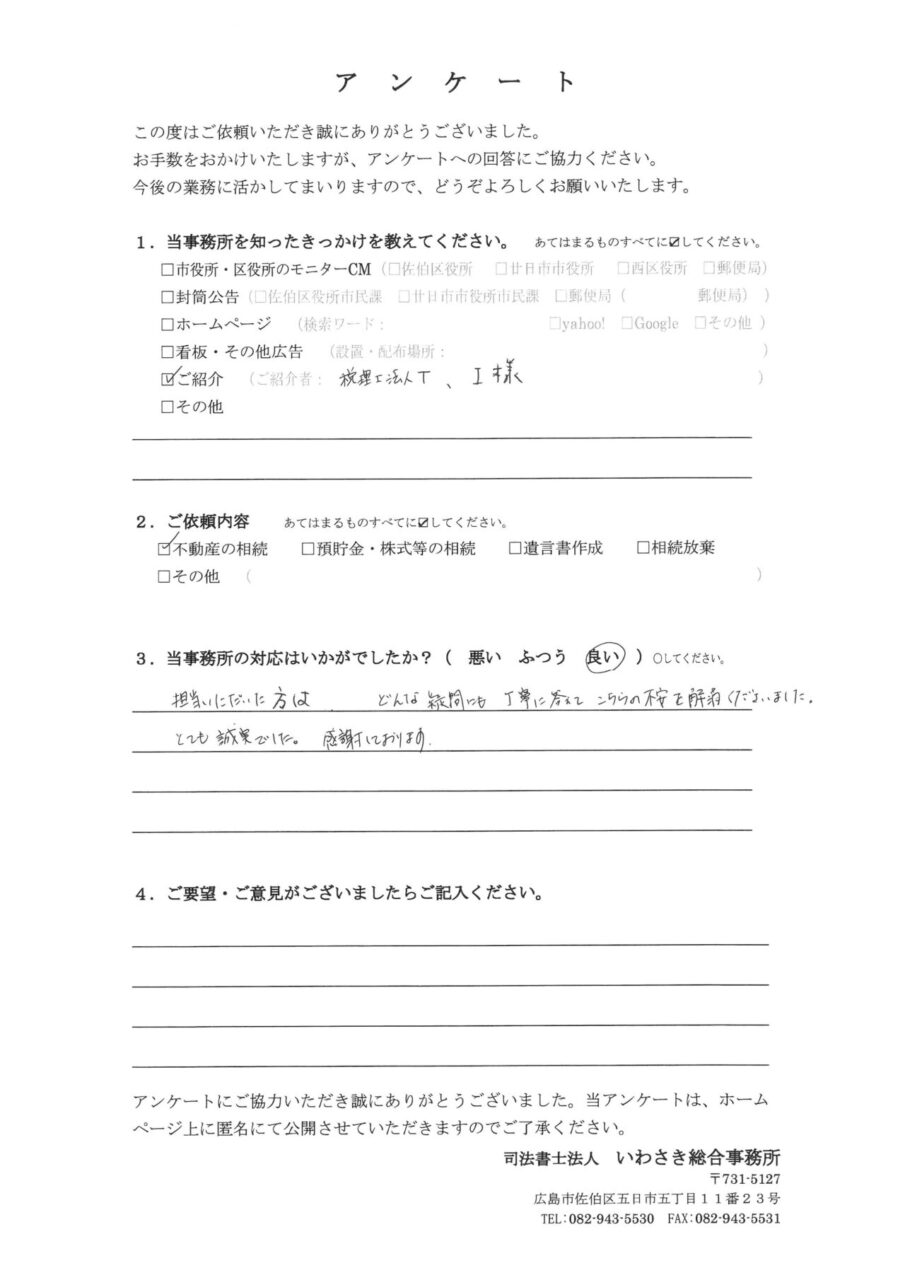 アンケート
この度はご依頼いただき誠にありがとうございました。
お手数をおかけいたしますが、アンケートへの回答にご協力ください。
今後の業務に活かしてまいりますので、どうぞよろしくお願いいたします。
1．当事務所を知ったきっかけを教えてください。 あてはまるものすべてに☑してください。
□市役所・区役所のモニターCM（□佐伯区役所 □廿日市市役所 □西区役所 □郵便局）
□封筒公告（□佐伯区役所市民課 □廿日市市役所市民課 □郵便局（ 郵便局））
□ホームページ （検索ワード： □yahoo! □Google □その他 ）
□看板・その他広告 （設置・配布場所： ）
☑ご紹介 （ご紹介者： 税理士法人T、I様 ）
□その他
2．ご依頼内容 あてはまるものすべてに☑してください。
☑不動産の相続 □預貯金・株式等の相続 □遺言書作成 □相続放棄
□その他 （ ）
3．当事務所の対応はいかがでしたか？（ 悪い ふつう 良い ）○してください。
担当いただいた方は どんな疑問にも丁寧に答えてこちらの不安を解消くださいました。
とても誠実でした。感謝しております。
4．ご要望・ご意見がございましたらご記入ください。
アンケートにご協力いただき誠にありがとうございました。当アンケートは、ホーム
ページ上に匿名にて公開させていただきますのでご了承ください。
司法書士法人 いわさき総合事務所
〒731-5127
広島市佐伯区五日市五丁目１１番２３号
TEL:082-943-5530 FAX:082-943-5531